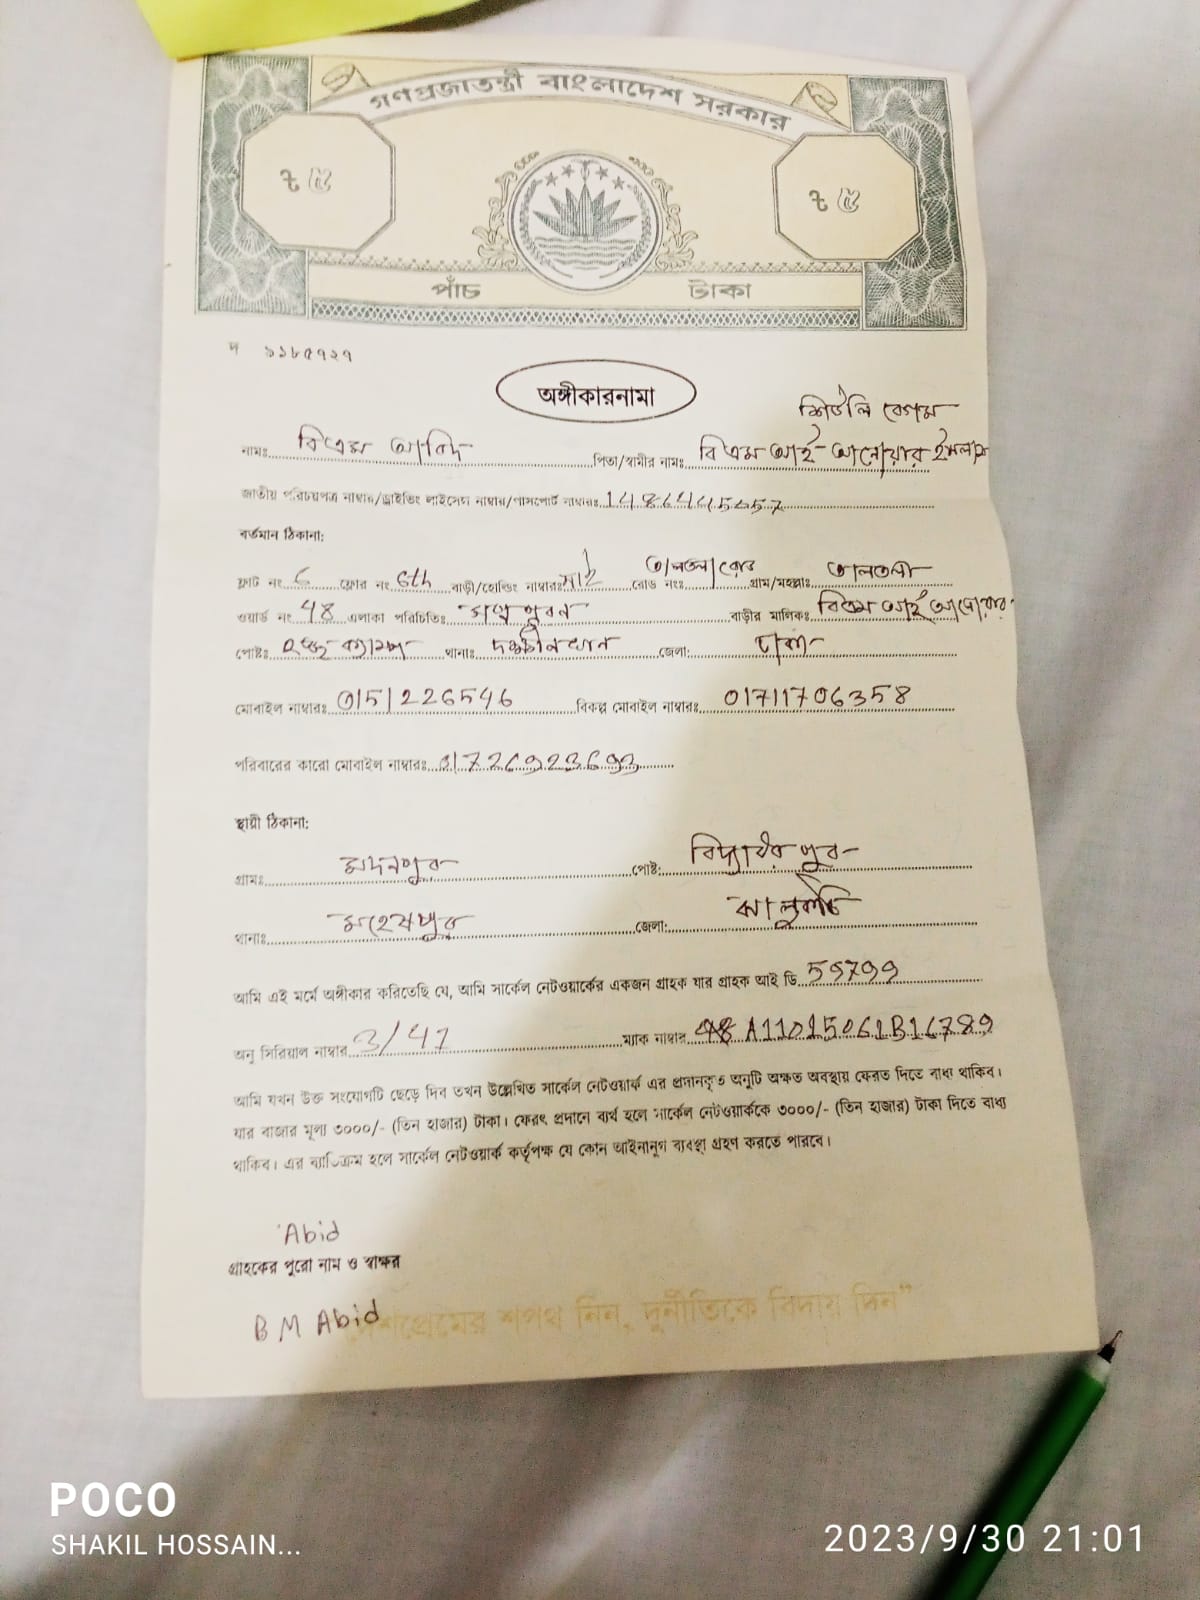 গণপ্রজাতন্ত্রী বাংলাদেশ সরকার
৳ ৫ ৳ ৫
পাঁচ টাকা
দ ৯১৮৫৭২৭
অঙ্গীকারনামা
শিউলি বেগম
নামঃ বিএম আবিদ পিতা/স্বামীর নামঃ বি এম আই আনোয়ার ইসলাম
জাতীয় পরিচয়পত্র নাম্বার/ড্রাইভিং লাইসেন্স নাম্বার/পাসপোর্ট নাম্বারঃ
বর্তমান ঠিকানা:
ফ্লাট নং ফ্লোর নং 6th বাড়ী/হোল্ডিং নাম্বারঃ নাই রোড নংঃ তালতলা রোড গ্রাম/মহল্লাঃ তালতলা
ওয়ার্ড নং 48 এলাকা পরিচিতিঃ বাড়ীর মালিকঃ বিএম আই আনোয়ার
পোষ্টঃ হজ্জ ক্যাম্প থানাঃ দক্ষীনখান জেলা: ঢাকা
মোবাইল নাম্বারঃ 0151226546 বিকল্প মোবাইল নাম্বারঃ 01711706358
পরিবারের কারো মোবাইল নাম্বারঃ
স্থায়ী ঠিকানা:
গ্রামঃ মদনপুর পোষ্ট: বিদ্যাধরপুর
থানাঃ মহেষপুর জেলা:
আমি এই মর্মে অঙ্গীকার করিতেছি যে, আমি সার্কেল নেটওয়ার্কের একজন গ্রাহক যার গ্রাহক আই ডি 59799
অনু সিরিয়াল নাম্বার 3/47 ম্যাক নাম্বার A11015061B16789
আমি যখন উক্ত সংযোগটি ছেড়ে দিব তখন উল্লেখিত সার্কেল নেটওয়ার্ক এর প্রদানকৃত অনুটি অক্ষত অবস্থায় ফেরত দিতে বাধ্য থাকিব।
যার বাজার মূল্য ৩০০০/- (তিন হাজার) টাকা। ফেরৎ প্রদানে ব্যর্থ হলে সার্কেল নেটওয়ার্ককে ৩০০০/- (তিন হাজার) টাকা দিতে বাধ্য
থাকিব। এর ব্যতিক্রম হলে সার্কেল নেটওয়ার্ক কর্তৃপক্ষ যে কোন আইনানুগ ব্যবস্থা গ্রহণ করতে পারবে।
Abid
গ্রাহকের পুরো নাম ও স্বাক্ষর
B M Abid
দেশপ্রেমের শপথ নিন, দুর্নীতিকে বিদায় দিন"
POCO
SHAKIL HOSSAIN...
2023/9/30 21:01